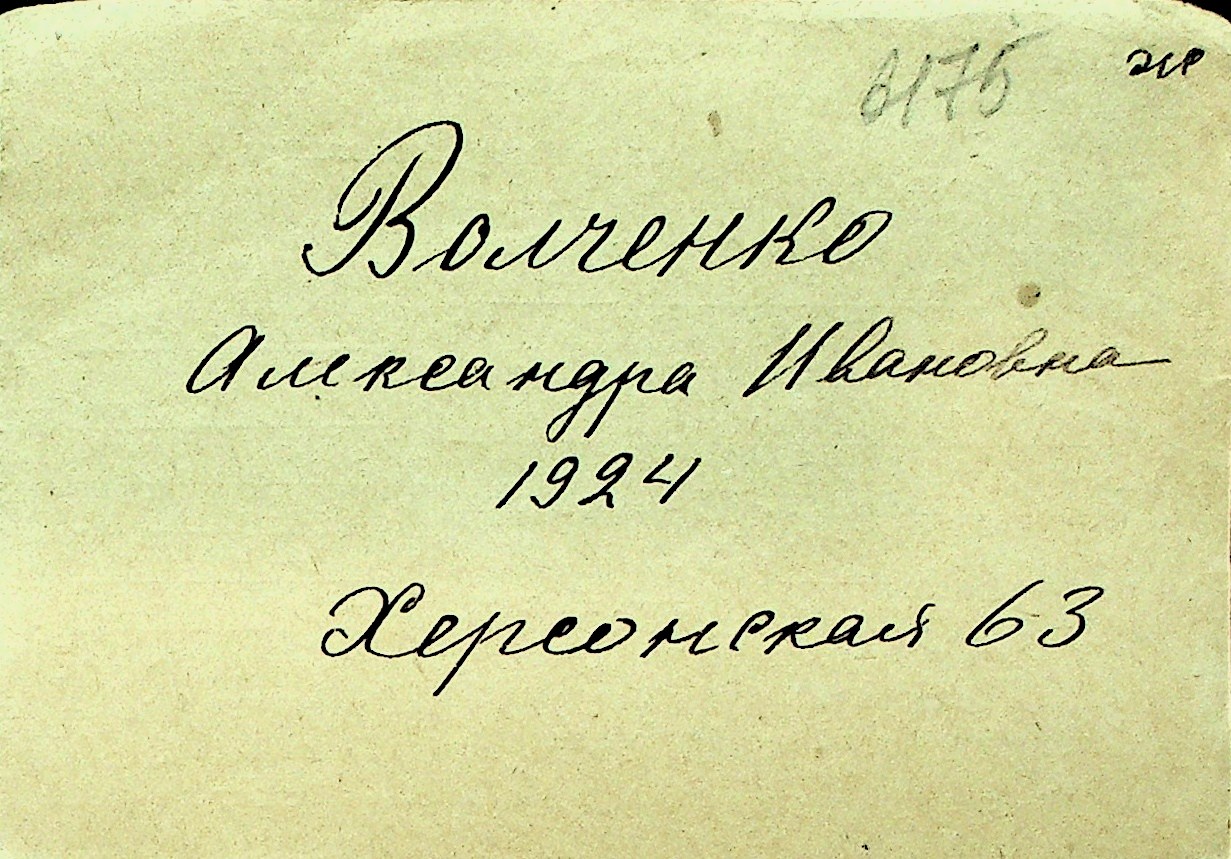 ж
Волченко
Александра Ивановна
1924
Херсонская 63